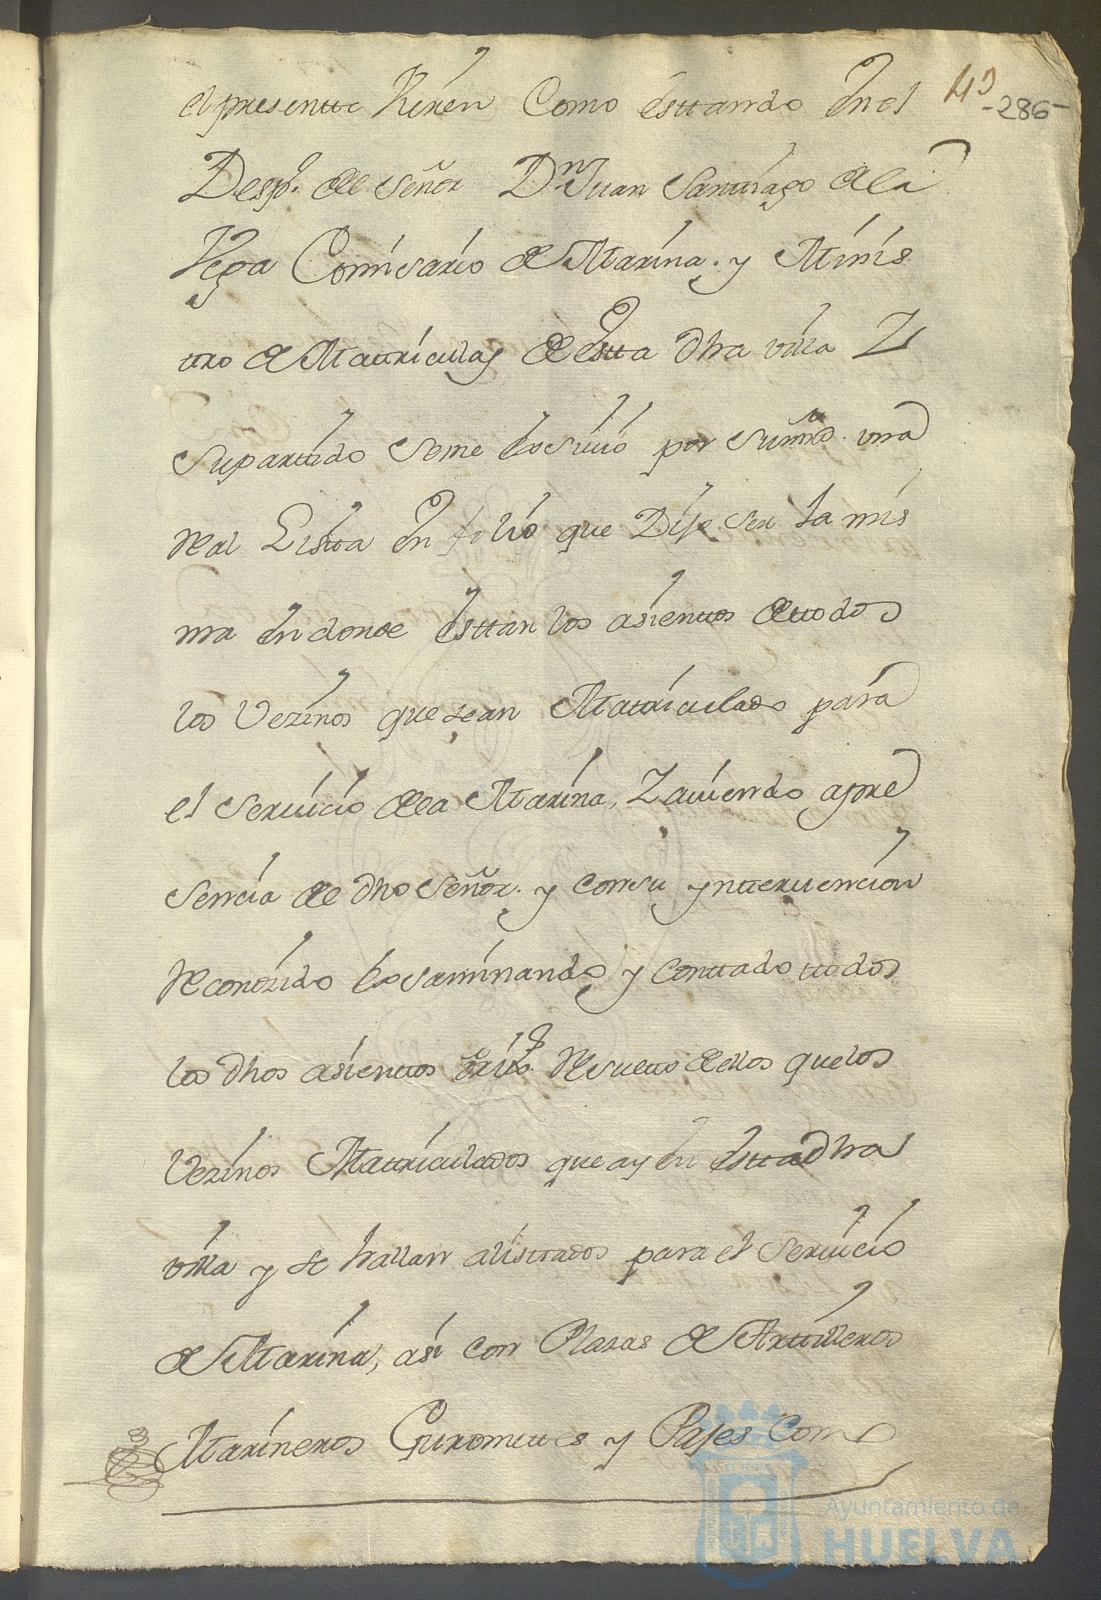 43
-286-
el presentte Vieren Como esttando En el
Desp.º de señor D.n Juan Santtiago de la
Vega Comisario de Marina. y Minis
tro de Mattriculas de Estta dha villa Y
su parttido se me Exsivió por su mrd. una
Real Listta En folio que Dijo ser la mis
ma En donde Esttan los asienttos de ttodos
los Vezinos que se an Mattriculado para
el Servicio de la Marina, Y aviendo a pre
sencia de dho Señor. y con su ynttervencion
Reconozido Exsaminando y Conttado ttodos
los dhos asienttos Resultto de ellos que los
Vezinos Mattriculados que ay En estta dha
villa y se hallan alisttados para el Servicio
de Marina, asi con Plazas de Arttilleros
Marineros Gurumettes y Pajes Com
Ayuntamiento de
HUELVA